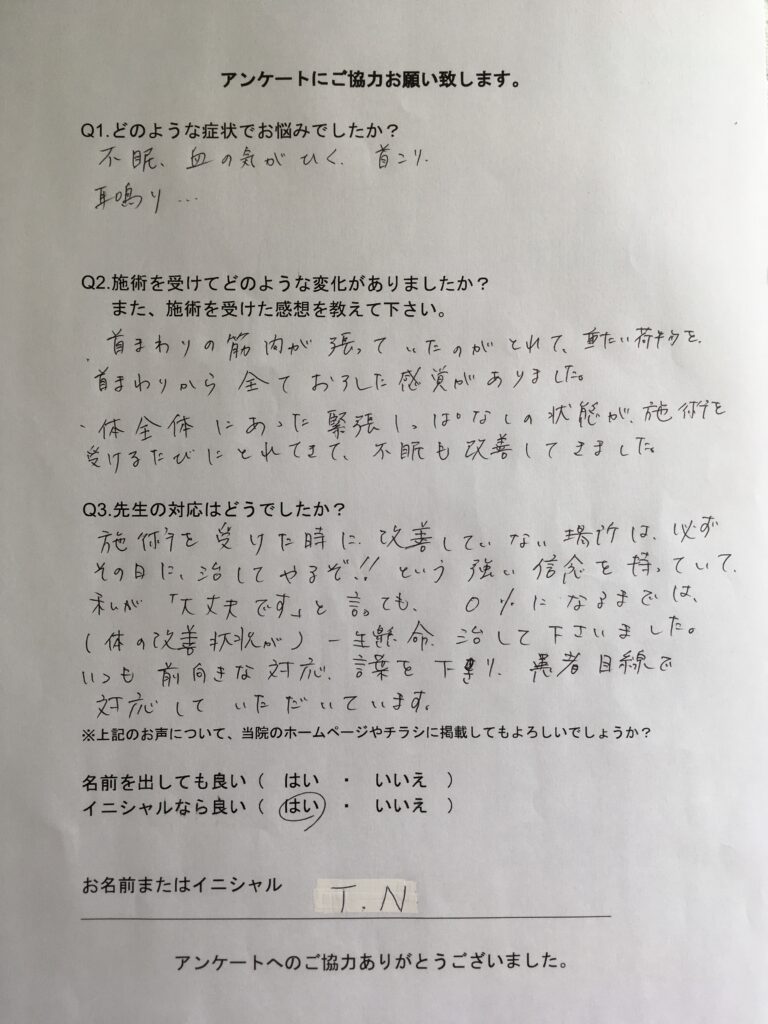 アンケートにご協力お願い致します。
Q1.どのような症状でお悩みでしたか？
不眠、血の気がひく、首こり、
耳鳴り…
Q2.施術を受けてどのような変化がありましたか？
また、施術を受けた感想を教えて下さい。
・首まわりの筋肉が張っていたのがとれて、重たい荷物を、
首まわりから全ておろした感覚がありました。
・体全体にあった緊張しっぱなしの状態が、施術を
受けるたびにとれてきて、不眠も改善してきました。
Q3.先生の対応はどうでしたか？
施術を受けた時に、改善していない場所は、必ず
その日に、治してやるぞ!!という強い信念を持っていて、
私が「大丈夫です」と言っても、0%になるまでは、
(体の改善状況が)一生懸命、治して下さいました。
いつも前向きな対応、言葉を下さり、患者目線で
対応していただいています。
※上記のお声について、当院のホームページやチラシに掲載してもよろしいでしょうか？
名前を出しても良い（　はい　・　いいえ　）
イニシャルなら良い（　はい　・　いいえ　）
お名前またはイニシャル　T.N
アンケートへのご協力ありがとうございました。